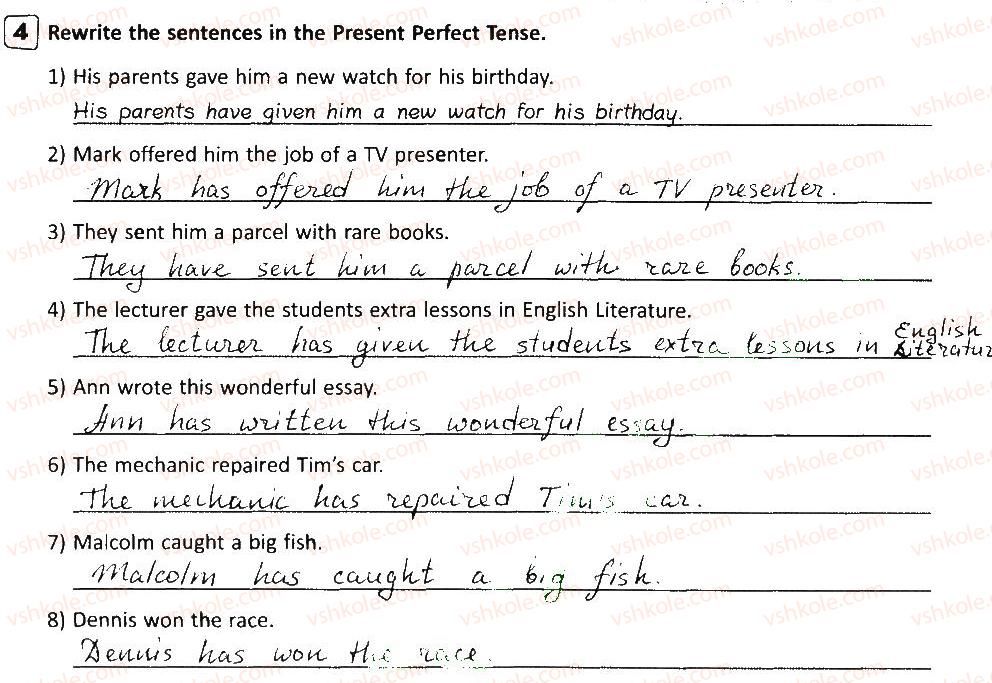 4 Rewrite the sentences in the Present Perfect Tense.
1) His parents gave him a new watch for his birthday.
His parents have given him a new watch for his birthday.
2) Mark offered him the job of a TV presenter.
Mark has offered him the job of a TV presenter.
3) They sent him a parcel with rare books.
They have sent him a parcel with rare books.
4) The lecturer gave the students extra lessons in English Literature.
The lecturer has given the students extra lessons in English Literatur
5) Ann wrote this wonderful essay.
Ann has written this wonderful essay.
6) The mechanic repaired Tim's car.
The mechanic has repaired Tim's car.
7) Malcolm caught a big fish.
Malcolm has caught a big fish.
8) Dennis won the race.
Dennis has won the race.
vshkole.com